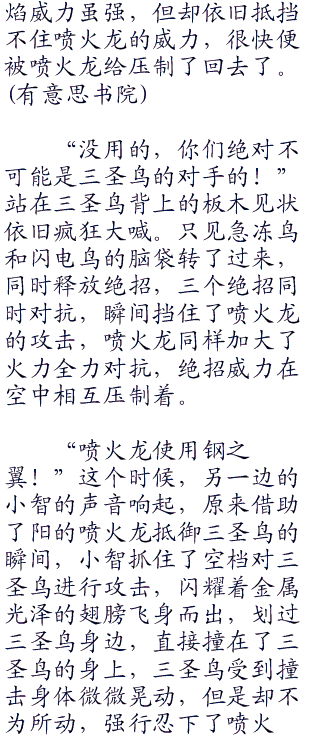 焰威力虽强，但却依旧抵挡
不住喷火龙的威力，很快便
被喷火龙给压制了回去了。
(有意思书院)
“没用的，你们绝对不
可能是三圣鸟的对手的！”
站在三圣鸟背上的板木见状
依旧疯狂大喊。只见急冻鸟
和闪电鸟的脑袋转了过来，
同时释放绝招，三个绝招同
时对抗，瞬间挡住了喷火龙
的攻击，喷火龙同样加大了
火力全力对抗，绝招威力在
空中相互压制着。
“喷火龙使用钢之
翼！”这个时候，另一边的
小智的声音响起，原来借助
了阳的喷火龙抵御三圣鸟的
瞬间，小智抓住了空档对三
圣鸟进行攻击，闪耀着金属
光泽的翅膀飞身而出，划过
三圣鸟身边，直接撞在了三
圣鸟的身上，三圣鸟受到撞
击身体微微晃动，但是却不
为所动，强行忍下了喷火